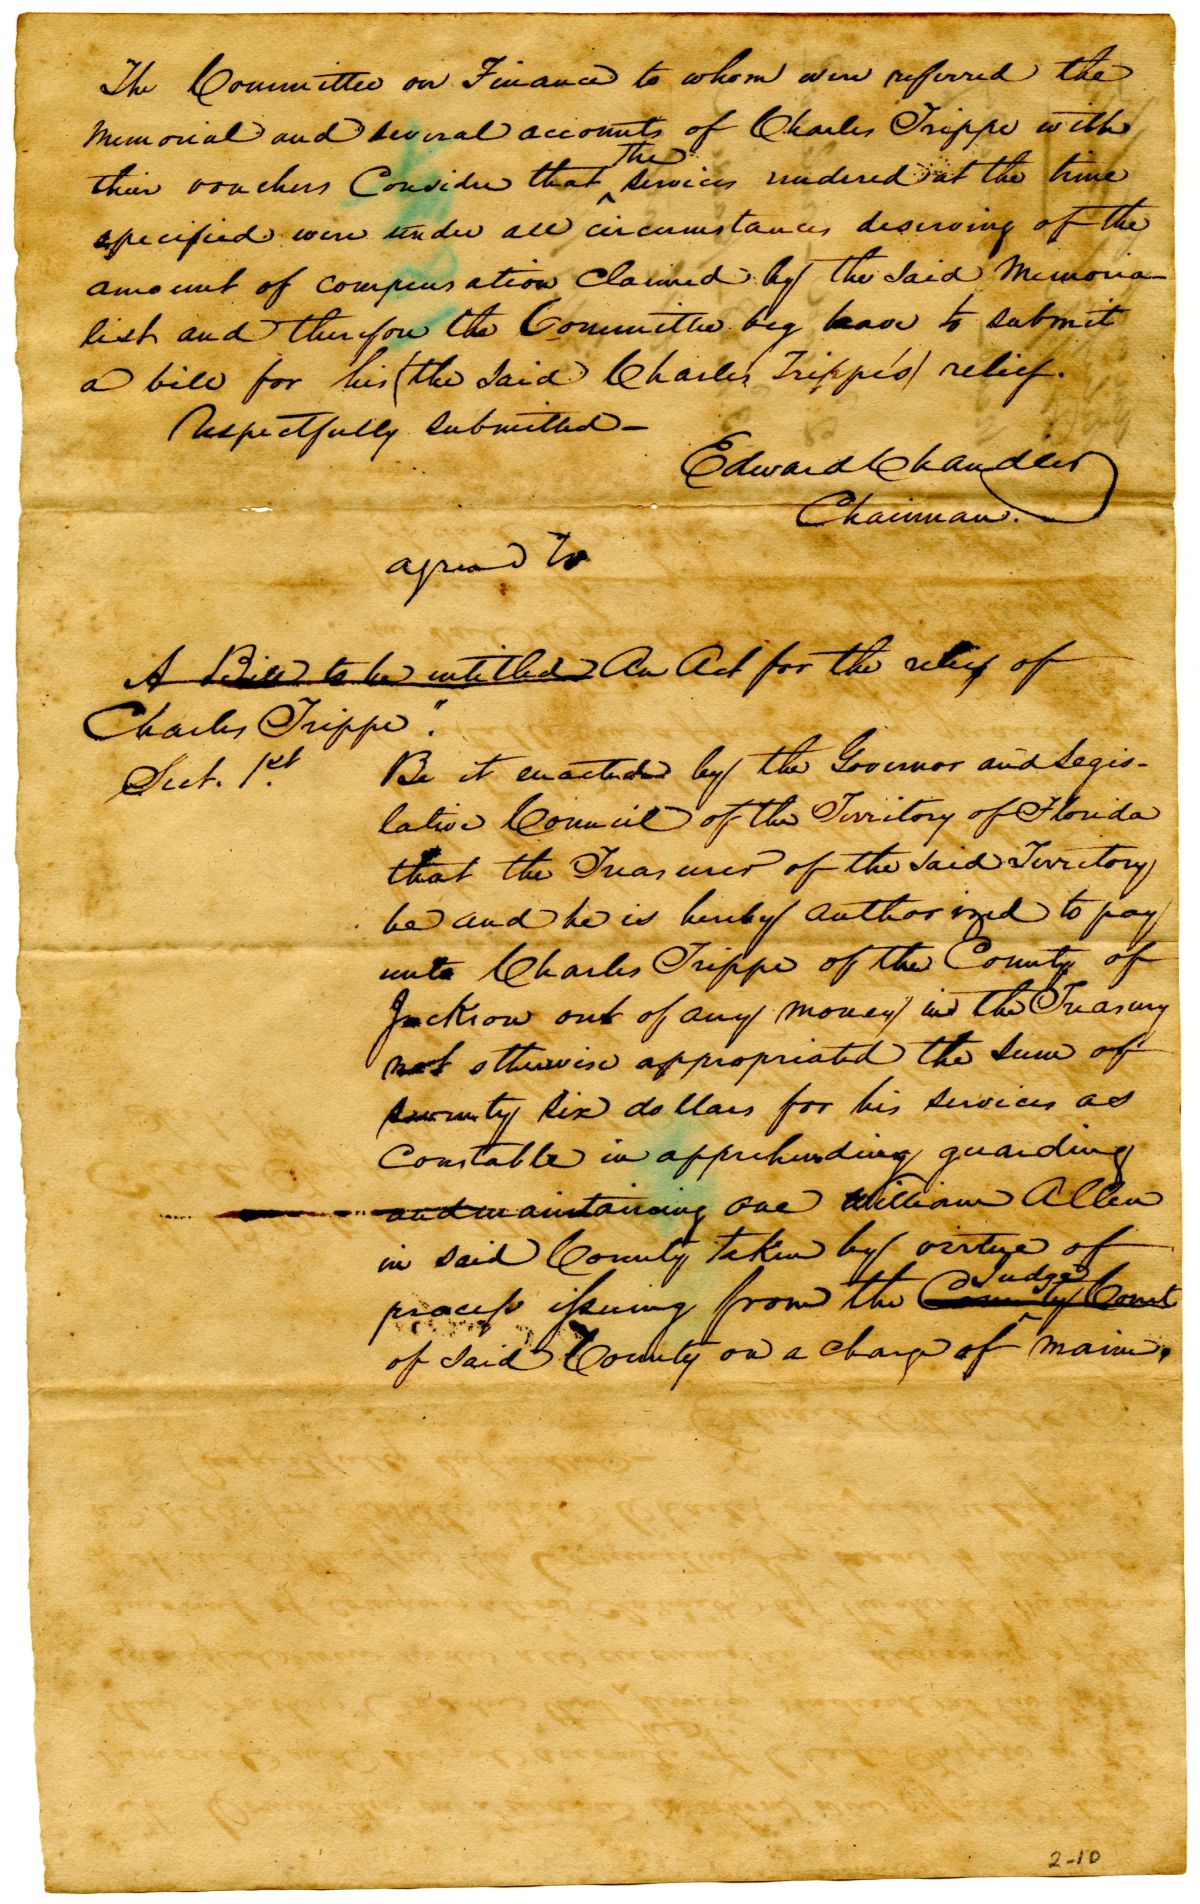 The Committee on Finance to whom were referred the
Memorial and several accounts of Charles Trippe with
their vouchers Consider that the services rendered at the time
specified were under all circumstances deserving of the
amount of compensation Claimed by the said Memoria-
list and therefore the Committee beg leave to submit
a bill for his (the said Charles Trippe's) relief.
Respectfully submitted -
Edward Chandler
Chairman.
agreed to
A Bill to be entitled An Act for the relief of
Charles Trippe".
Sect. 1st.
Be it enacted by the Governor and Legis-
lative Council of the Territory of Florida
that the Treasurer of the said Territory
be and he is hereby authorized to pay
unto Charles Trippe of the County of
Jackson out of any money in the Treasury
not otherwise appropriated the sum of
seventy six dollars for his services as
Constable in apprehending guarding
and maintaining one William Allen
in said County taken by virtue of
process issuing from the County Court Judge
of said County on a charge of maim.
2-10